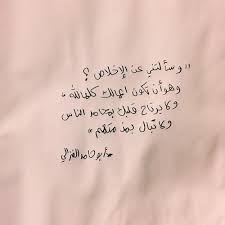 "وسألتني عن الإخلاص ؟
وهو أن تكون اعمالك كلها لله ،
ولا يرتاح قلبك بمحامد الناس
ولا تبالي بمذمتهم "
*أبو حامد الغزالي